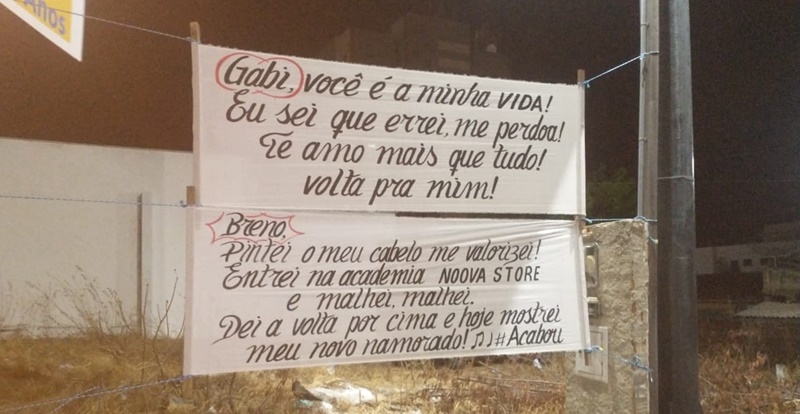 Anos
Gabi, você é a minha VIDA!
Eu sei que errei, me perdoa!
Te amo mais que tudo!
volta pra mim!
Breno,
Pintei o meu cabelo me valorizei!
Entrei na academia NOOVA STORE
e malhei, malhei.
Dei a volta por cima e hoje mostrei
meu novo namorado! ♫♩#Acabou